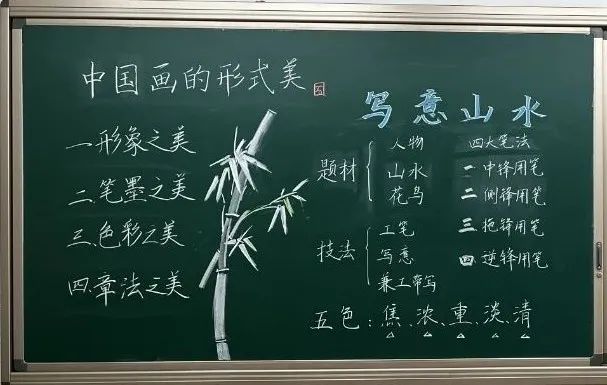 中国画的形式美
一.形象之美
二.笔墨之美
三.色彩之美
四.章法之美
写意山水
题材
人物
山水
花鸟
技法
工笔
写意
兼工带写
四大笔法
一 中锋用笔
二 侧锋用笔
三 拖锋用笔
四 逆锋用笔
五色：焦、浓、重、淡、清